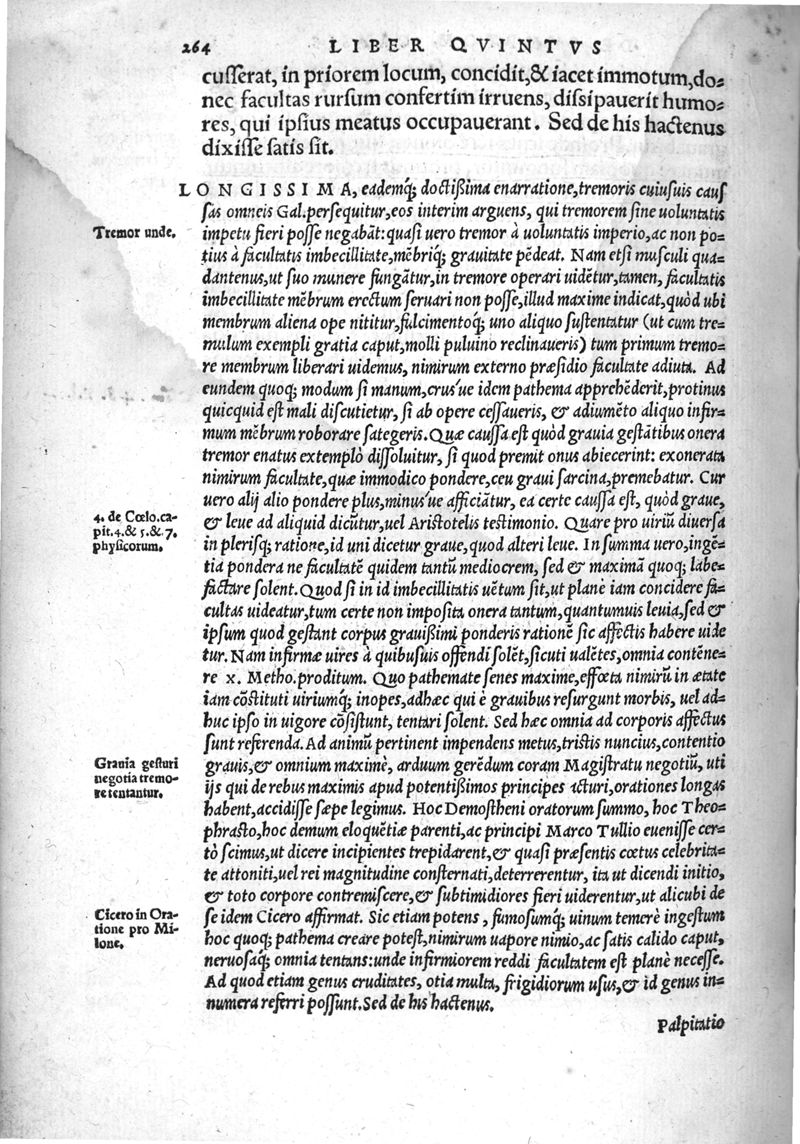 264 LIBER QVINTVS
cusserat, in priorem locum, concidit, & iacet immotum, do=
nec facultas rursum confertim irruens, dissipauerit humo=
res, qui ipsius meatus occupauerant. Sed de his hactenus
dixisse satis sit.
LONGISSIMA, eademq́; doctißima enarratione, tremoris cuiusuis caus
sas omneis Gal. persequitur, eos interim arguens, qui tremorem sine uoluntatis
Tremor unde.
impetu fieri posse negabāt: quasi uero tremor à uoluntatis imperio, ac non po=
tius à facultatis imbecillitate, mēbriq́; grauitate pēdeat. Nam etsi musculi qua=
dantenus, ut suo munere fungātur, in tremore operari uidētur, tamen, facultatis
imbecillitate mēbrum erectum seruari non posse, illud maxime indicat, quòd ubi
membrum aliena ope nititur, fulcimentoq́; uno aliquo sustentatur (ut cum tre=
mulum exempli gratia caput, molli puluino reclinaueris) tum primum tremo=
re membrum liberari uidemus, nimirum externo præsidio facultate adiuta. Ad
eundem quoq; modum si manum, crus'ue idem pathema apprehēderit, protinus
quicquid est mali discutietur, si ab opere cessaueris, & adiumēto aliquo infir=
mum mēbrum roborare sategeris. Quæ caussa est quòd grauia gestātibus onera
tremor enatus extemplò dissoluitur, si quod premit onus abiecerint: exonerata
nimirum facultate, quæ immodico pondere, ceu graui sarcina, premebatur. Cur
uero alij alio pondere plus, minus'ue afficiātur, ea certe caussa est, quòd graue,
4. de Cœlo. ca-
pit. 4. & 5. & 7.
physicorum.
& leue ad aliquid dicūtur, uel Aristotelis testimonio. Quare pro uiriū diuersa
in plerisq; ratione, id uni dicetur graue, quod alteri leue. In summa uero, ingē=
tia pondera ne facultatē quidem tantū mediocrem, sed & maximā quoq; labe=
factare solent. Quod si in id imbecillitatis uētum sit, ut planè iam concidere fa=
cultas uideatur, tum certe non imposita onera tantum, quantumuis leuia, sed &
ipsum quod gestant corpus grauißimi ponderis rationē sic affectis habere uide
tur. Nam infirmæ uires à quibusuis offendi solēt, sicuti ualētes, omnia contēne=
re x. Metho. proditum. Quo pathemate senes maxime, effœta nimirū in ætate
iam cōstituti uiriumq́; inopes, adhæc qui è grauibus resurgunt morbis, uel ad=
huc ipso in uigore cōsistunt, tentari solent. Sed hæc omnia ad corporis affectus
sunt referenda. Ad animū pertinent impendens metus, tristis nuncius, contentio
Grauia gesturi
negotia tremo-
re tentantur.
grauis, & omnium maximè, arduum gerēdum coram Magistratu negotiū, uti
ijs qui de rebus maximis apud potentißimos principes acturi, orationes longas
habent, accidisse sæpe legimus. Hoc Demostheni oratorum summo, hoc Theo=
phrasto, hoc demum eloquētiæ parenti, ac principi Marco Tullio euenisse cer=
tò scimus, ut dicere incipientes trepidarent, & quasi præsentis cœtus celebrita=
te attoniti, uel rei magnitudine consternati, deterrerentur, ita ut dicendi initio,
& toto corpore contremiscere, & subtimidiores fieri uiderentur, ut alicubi de
Cicero in Ora-
tione pro Mi-
lone.
se idem Cicero affirmat. Sic etiam potens, fumosumq́; uinum temerè ingestum
hoc quoq; pathema creare potest, nimirum uapore nimio, ac satis calido caput,
neruosaq́; omnia tentans: unde infirmiorem reddi facultatem est planè necesse.
Ad quod etiam genus cruditates, otia multa, frigidiorum usus, & id genus in=
numera referri possunt. Sed de his hactenus.
Palpitatio